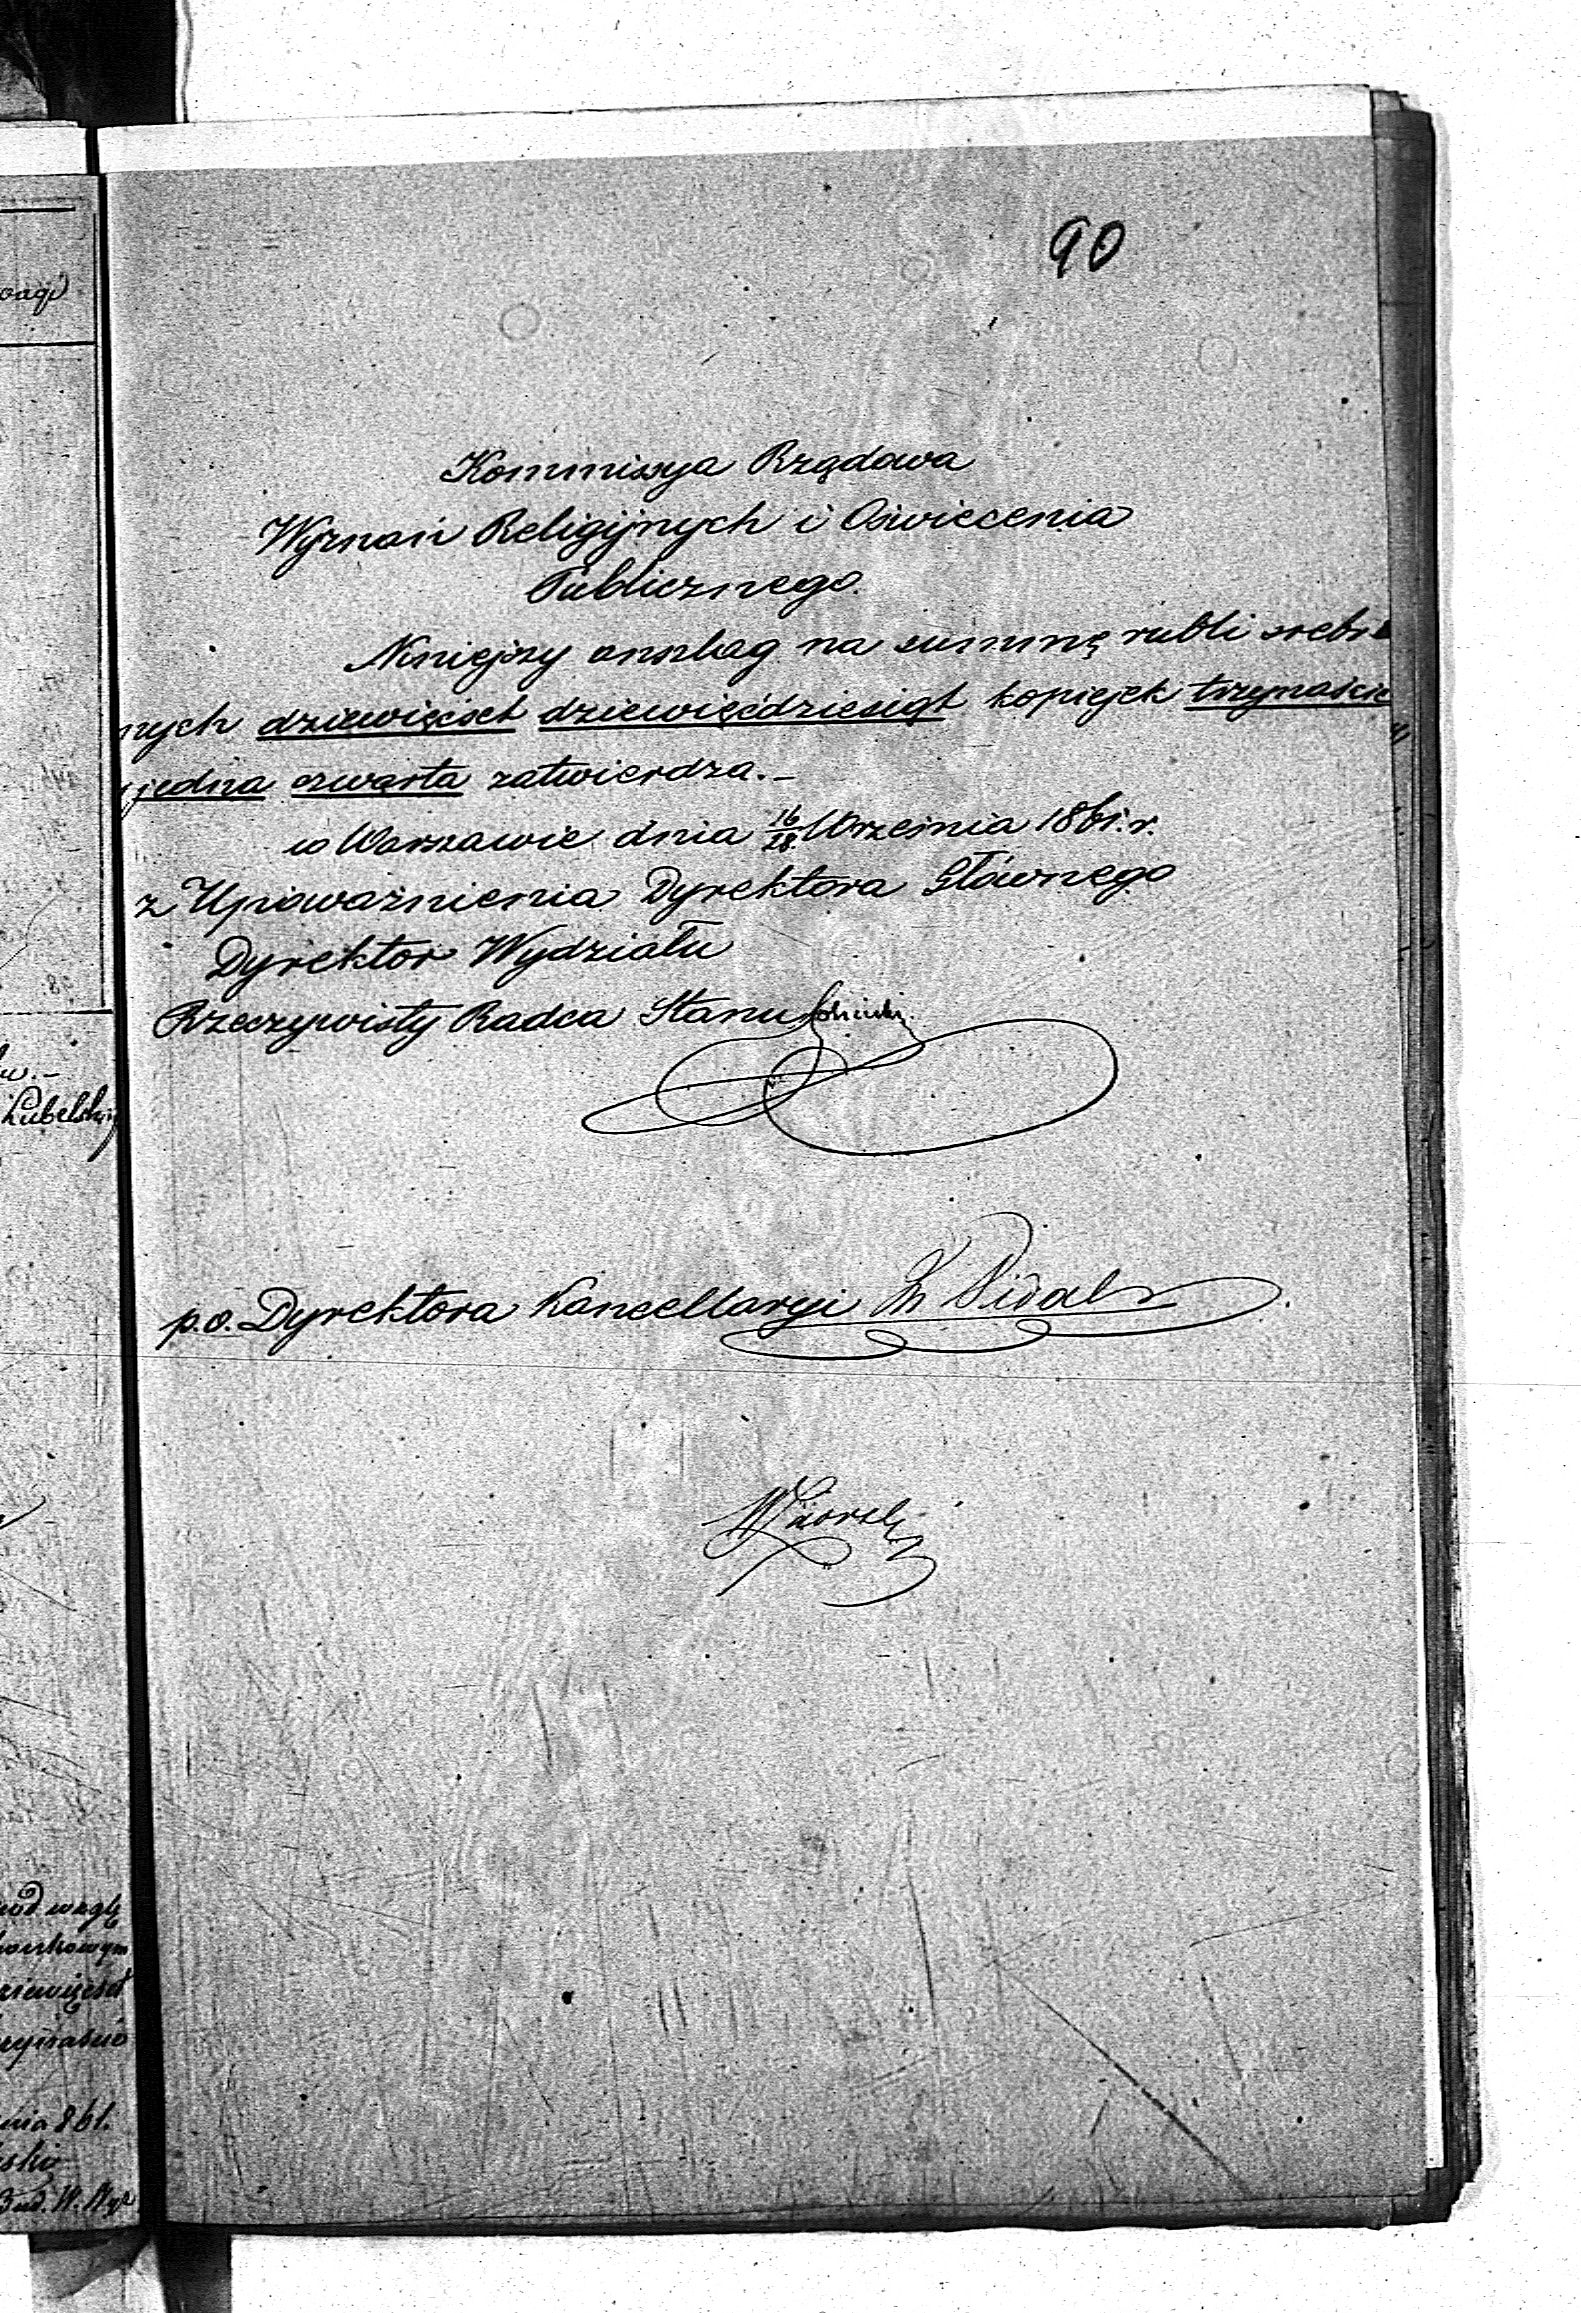 90
Kommissya Rządowa
Wyznań Religijnych i Oświecenia
Publicznego.
Niniejszy anszlag na summę rubli srebr
nych dziewięćset dziewięćdziesiąt kopiejek trzynaście
jedna czwarta zatwierdza.
w Warszawie dnia 16/28 Września 1861. r.
z Upoważnienia Dyrektora Głównego
Dyrektor Wydziału
Rzeczywisty Radca Stanu
p.o. Dyrektora Kancellaryi
Lubelski